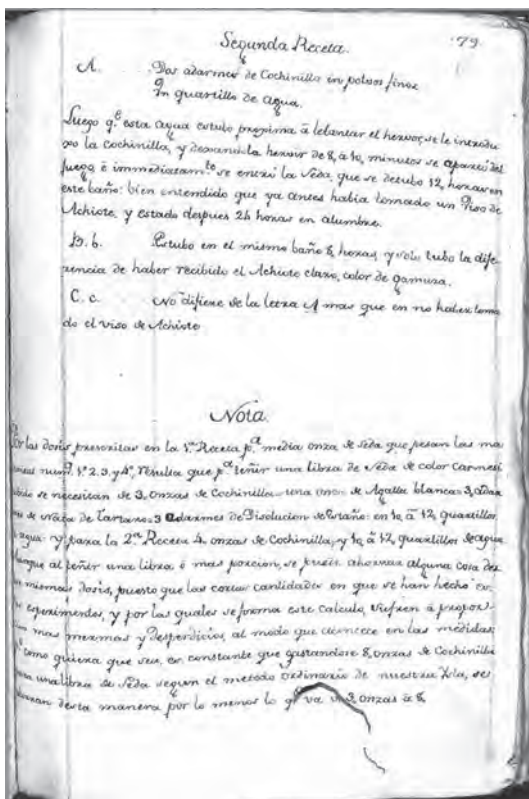 Segunda Receta.
79.
A. Dos adarmes de Cochinilla in polvos finos
Un quartillo de agua.
Luego q.e esta agua estubo proxima â lebantar el hervor, se le introdu
xo la cochinilla, y dexandola hervir de 8, â 10, minutos se aparto del
fuego, é immediatam.te se entró la seda, que se detubo 12, horas en
este baño: bien entendido que ya antes había tomado un viso de
Achiote, y estado despues 24 horas en alumbre.
B. b. Estubo en el mismo baño 8 horas, y solo tubo la dife-
rencia de haber recibido el Achiote claro, color de gamuza.
C. c. No difiere de la letra A mas que en no haber toma
do el viso de Achiote
Nota.
Por las dosis prescritas en la 1.a Receta p.a media onza de seda que pesan las ma
num.s 1.o 2. 3. y 4.o, resulta que p.a teñir una libra de seda de color Carmesi
se necesitan de 3, onzas de Cochinilla = una onza de Agalla blanca = 3, adar
de Tartaro = 3 Adarmes de Disolucion de Estaño: en 10, â 12, quartillos
agua: y para la 2.a Receta 4. onzas de Cochinilla, y 10, â 12, quartillos de agua
al teñir una libra, ô mas porcion, se puede ahorrar alguna cosa de
mismas dosis, puesto que las cortas cantidades en que se han hecho
esperimentos, y por las quales se forma este calculo, sufren â propor-
mas mermas y desperdicios, al modo que acontece en las medidas;
como quiera que sea, es constante que gastandose 8, onzas de Cochinilla
una libra de Seda segun el metodo ordinario de nuestra
desta manera por lo menos lo q.e va de 3, onzas â 8,